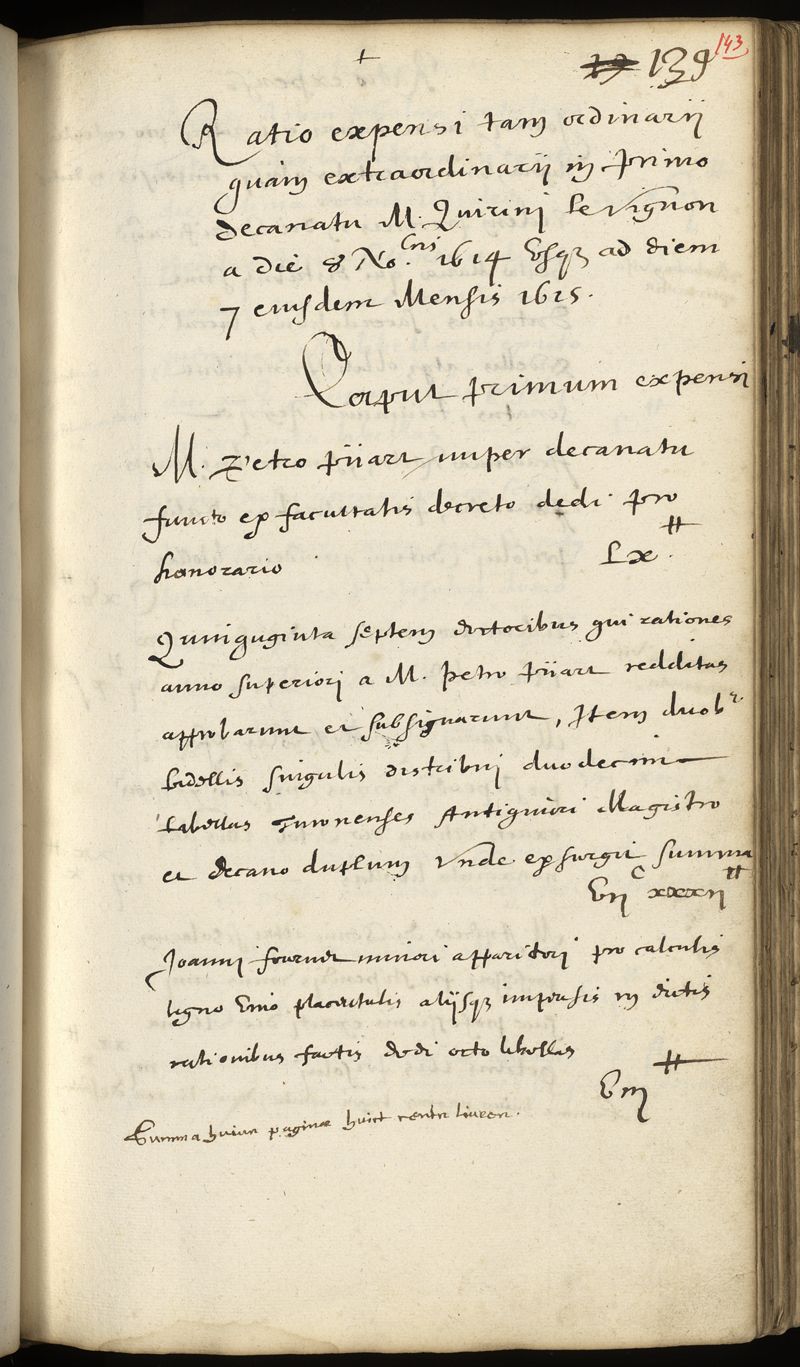 +
19 139
143
Ratio expensi tam ordinarii
quàm extraordinarii in primo
decanatu M. Quirini le vignon
a die 8 No.bris 1614 usq; ad diem
7 eiusdem Mensis 1615.
Caput primum expensi
M. Petro piiart nuper decanatu
functo ex facultatis decreto dedi pro
honorario Lx. ⁑
Quinquginta septem doctoribus qui rationes
anno superiori a M. petro piiart redditas
approbarunt et subsignarunt, Item duob9
bidellis singulis distribui duodecim
libellas Turonenses Antiquiori Magistro
et decano duplum unde exsurgit summa
vijc xxxij ⁑
Joanni fournier minori apparitori pro calculis
ligno vino placentulis aliisq; impensis in dictis
rationibus factis dedi octo libellas
viij ⁑
Summa huius paginae huict centz livres.